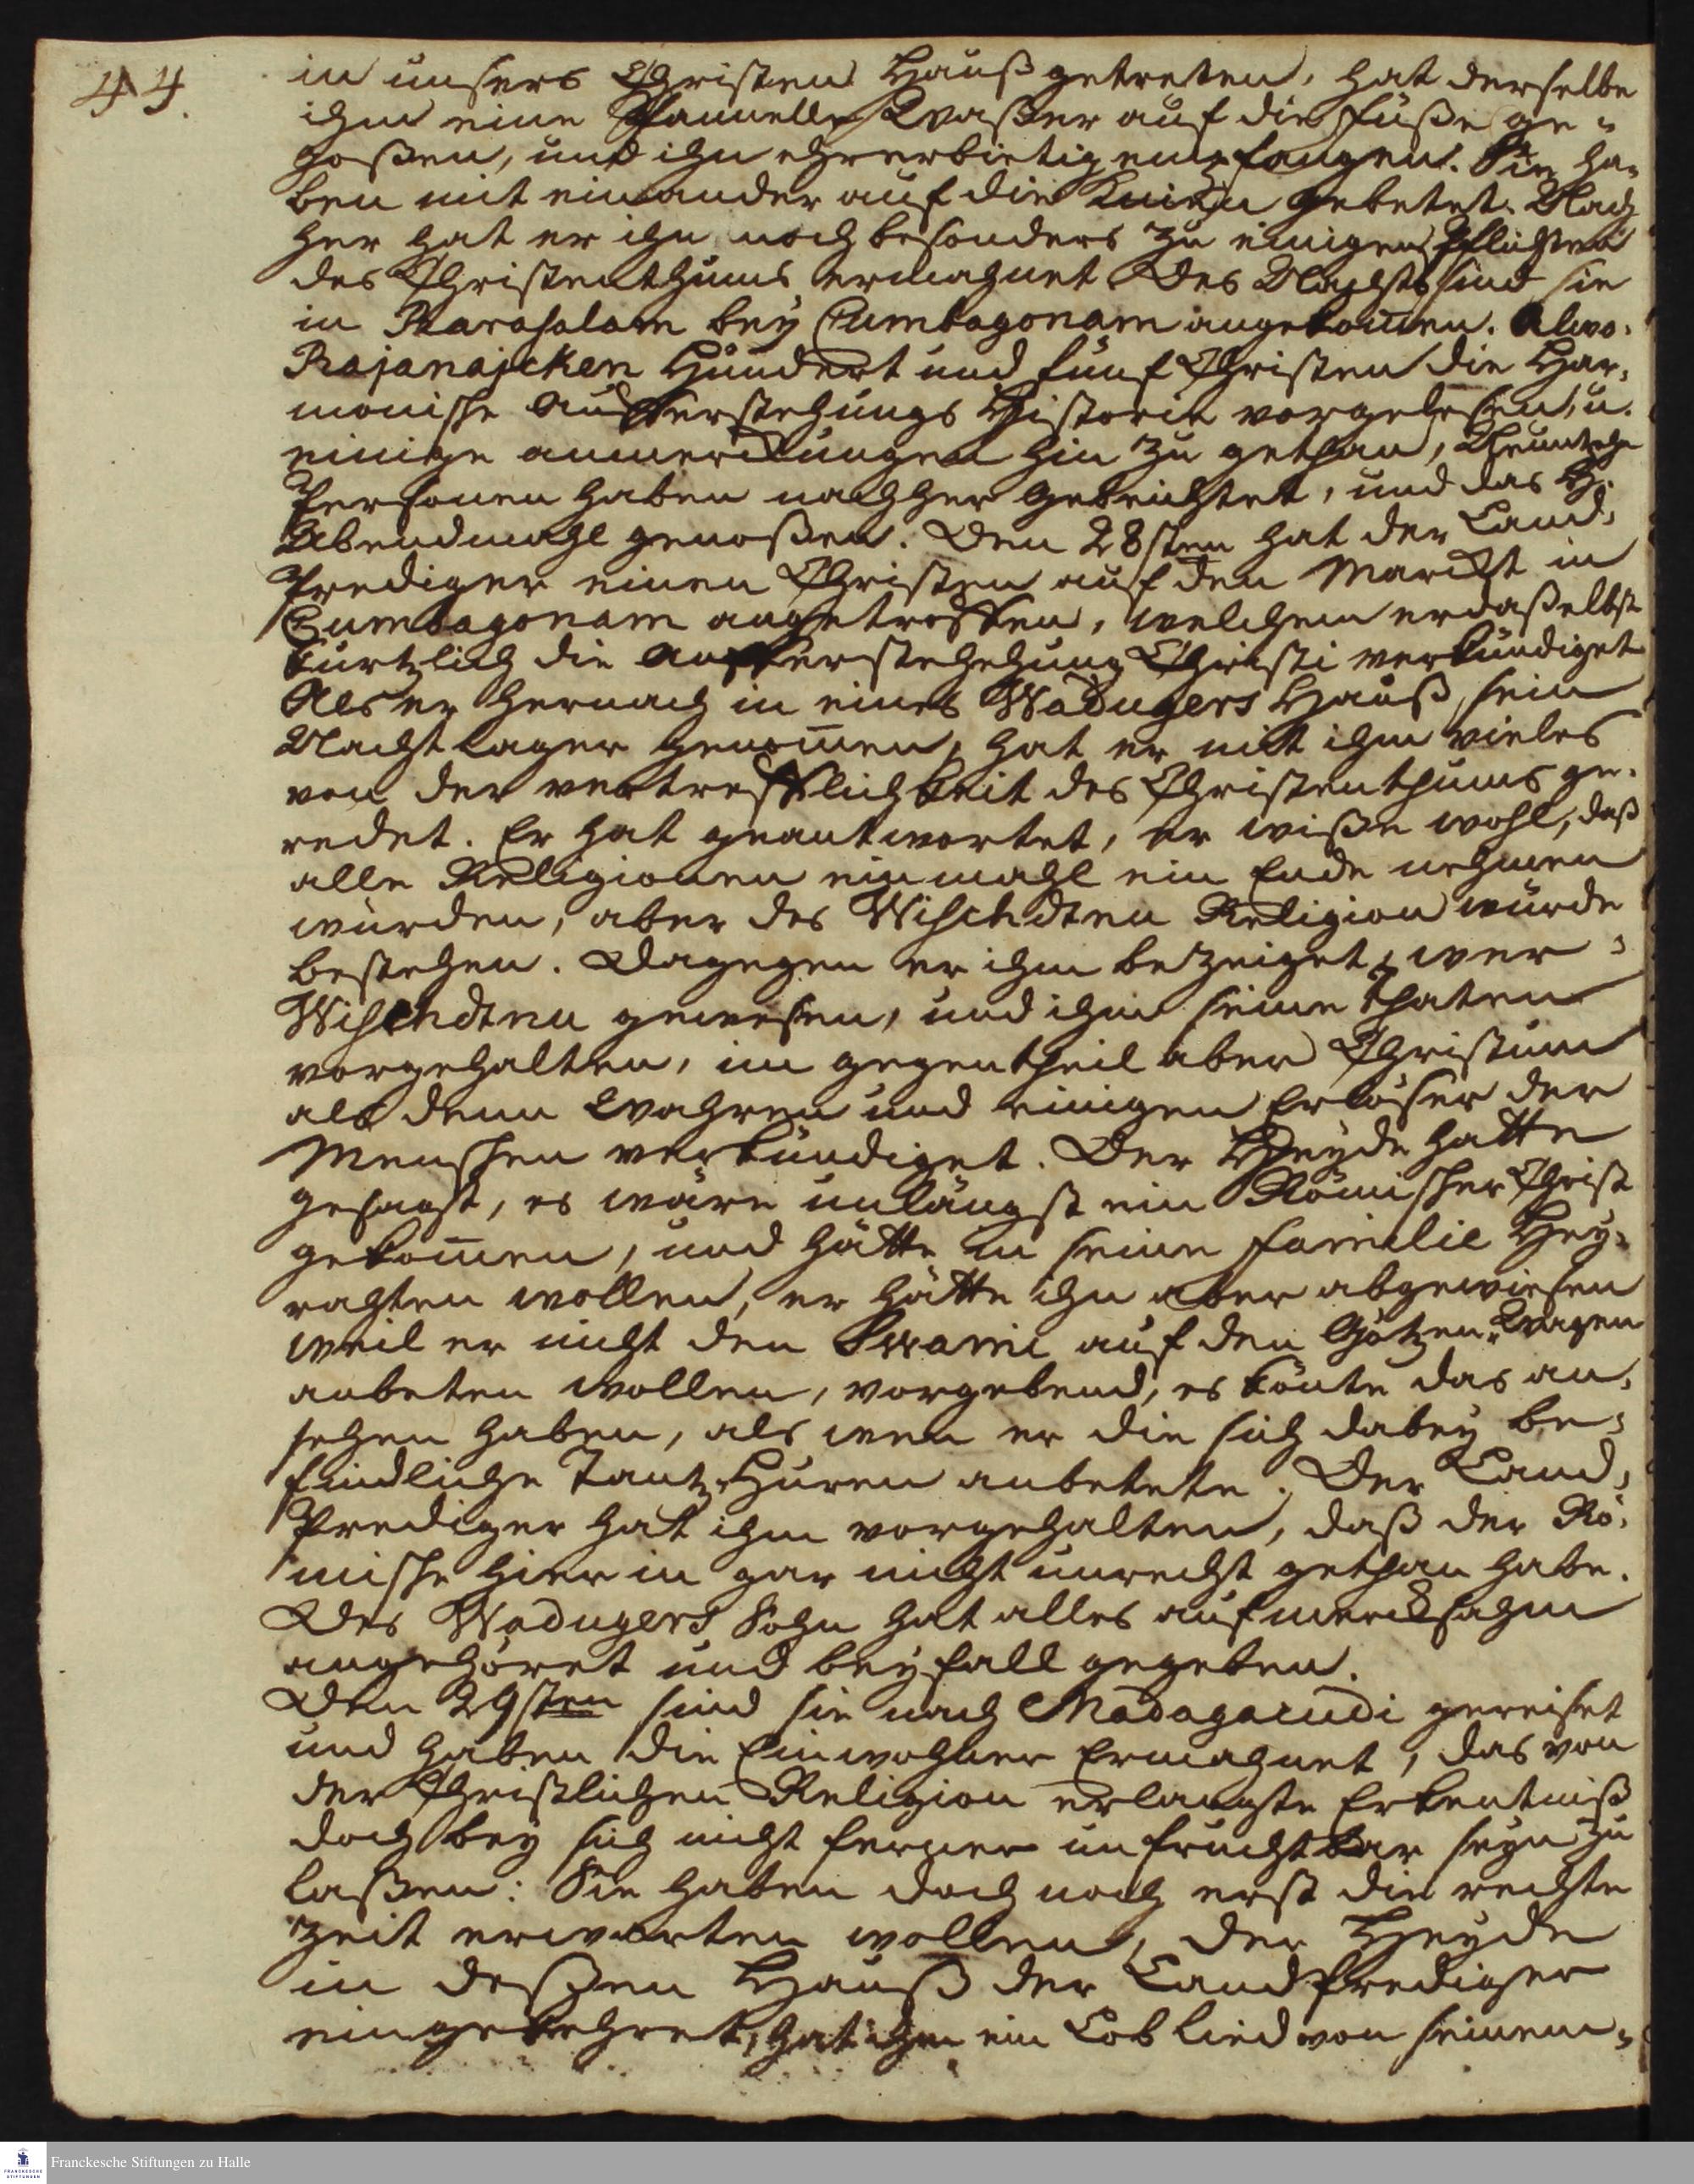 44.
in unsers Christen Hauß getreten, hat derselbe
ihm eine Waßer auf die Füße ge-
goßen, und ihn ehrerbietig empfangen. Sie ha-
ben mit einander auf die Knien gebetet. Nach
her hat er ihn noch besonders zu einigen Pflichten
des Christenthums ermahnet Des Nachts sind sie
in Marasalam bey Cumbagonam angekom̄en. Alwo
Rajanajcken Hundert und fünf Christen die Har-
monische Aufferstehungs Historie vorgelesen, u.
einige anmerckungen hin zu gethan, Neuntzehn
Personen haben nachher gebeichtet, und das H.
Abendmahl genoßen. Den 28sten hat der Land-
Prediger einen Christen auf den Marckt in
Cumbagonam angetroffen, welchem er daßelbst
kürtzlich die Aufferstehehung Christi verkündiget
Als er hernach in eines Wadugers Hauß sein
Nachtlager genom̄en, hat er mit ihm vieles
von der vertrefflichkeit des Christenthums ge-
redet. Er hat geantwortet, er wiße wohl, daß
alle Religionen einmahl ein Ende nehmen
würden, aber des Wischdtnu Religion würde
bestehen. Dagegen er ihm bezeiget, wer
Wischdtnu gewesen, und ihm seine Thaten
vorgehalten, im gegentheil aber Christum
als denn Wahren und einigen Erlöser der
Menschen verkündiget. Der Heyde hatte
gesagt, es wäre unlängst ein Römischer Christ
gekom̄en, und hätte in seine familie Hey-
rahten wollen, er hätte ihn aber abgewiesen
weil er nicht den Swami auf den Götzen-Wagen
anbeten wollen, vorgebend, es könte das an-
sehen haben, als wen er die sich dabey be-
findliche Tantz-Huren anbetete. Der Land-
Prediger hat ihm vorgehalten, daß der Rö-
mische hierin gar nicht unrecht gethan habe.
Des Wadugers Sohn hat alles aufmercksahm
angehöret und beyfall gegeben.
Den 29sten sind sie nach Madagacudi gereiset
und haben die Einwohner Ermahnet, das von
der Christlichen Religion erlangte Erkentniß
doch bey sich nicht ferner unfruchtbar seyn zu
laßen: Sie haben doch noch erst die rechte
Zeit erwarten wollen, der Heyde
in deßen Hauß der LandPrediger
eingekehret, hat ihm ein Lob Lied von seinem
Franckesche Stiftungen zu Halle
FRANCKESCHE STIFTUNGEN